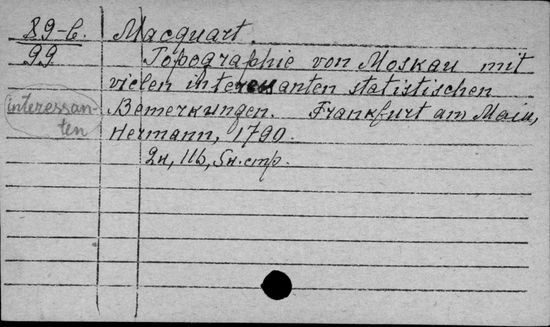 89-б.
99
Macquart.
Topographie von Moskau mit
vielen interessanten statistischen
Bemerkungen. Frankfurt am Main,
Hermann, 1790.
2н, 116, 5н. стр.
interessan-
ten